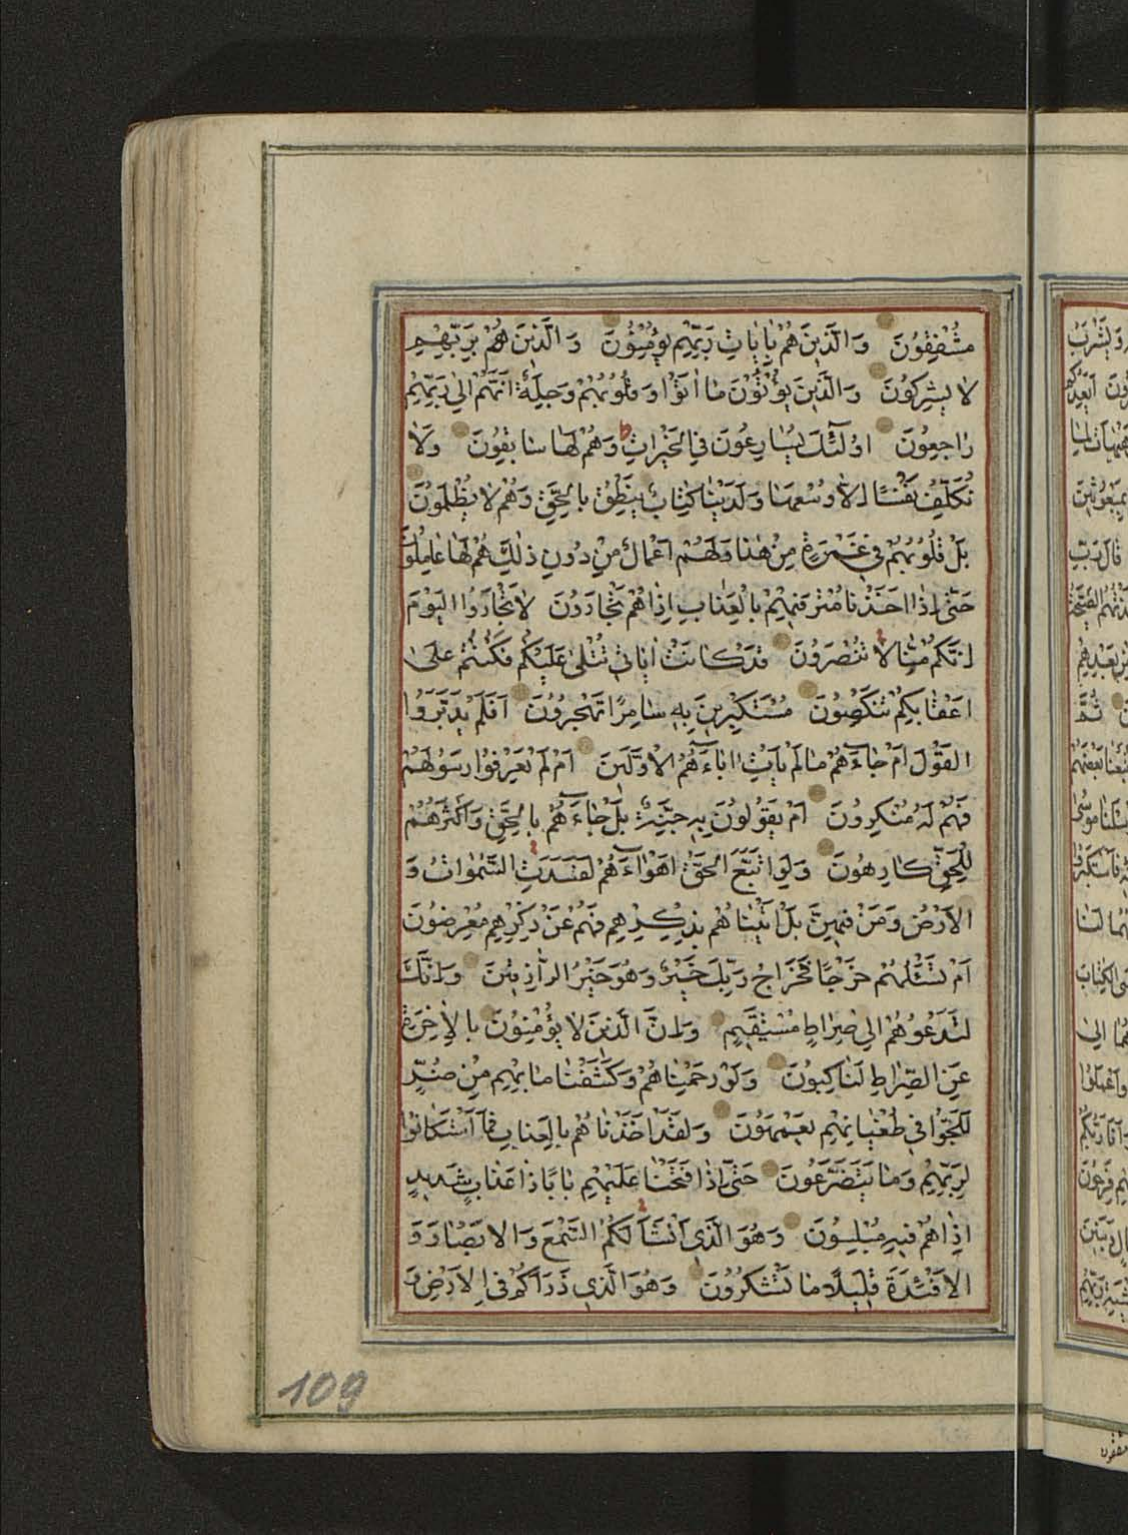 مُشْفِقُونَ وَالَّذِينَ هُمْ بِاٰيَاتِ رَبِّهِمْ يُؤْمِنُونَ وَالَّذِينَ هُمْ بِرَبِّهِمْ
لَا يُشْرِكُونَ وَالَّذِينَ يُؤْتُونَ مَا اٰتَوْا وَقُلُوبُهُمْ وَجِلَةٌ اَنَّهُمْ اِلٰى رَبِّهِمْ
رَاجِعُونَ اُولٰئِكَ يُسَارِعُونَ فِي الْخَيْرَاتِ وَهُمْ لَهَا سَابِقُونَ وَلَا
نُكَلِّفُ نَفْسًا اِلَّا وُسْعَهَا وَلَدَيْنَا كِتَابٌ يَنْطِقُ بِالْحَقِّ وَهُمْ لَا يُظْلَمُونَ
بَلْ قُلُوبُهُمْ فِي غَمْرَةٍ مِنْ هٰذَا وَلَهُمْ اَعْمَالٌ مِنْ دُونِ ذٰلِكَ هُمْ لَهَا عَامِلُونَ
حَتّٰى اِذَا اَخَذْنَا مُتْرَفِيهِمْ بِالْعَذَابِ اِذَا هُمْ يَجْاَرُونَ لَا تَجْاَرُوا الْيَوْمَ
اِنَّكُمْ مِنَّا لَا تُنْصَرُونَ قَدْ كَانَتْ اٰيَاتِي تُتْلٰى عَلَيْكُمْ فَكُنْتُمْ عَلٰى
اَعْقَابِكُمْ تَنْكِصُونَ مُسْتَكْبِرِينَ بِهِ سَامِرًا تَهْجُرُونَ اَفَلَمْ يَدَّبَّرُوا
الْقَوْلَ اَمْ جَاءَهُمْ مَا لَمْ يَاْتِ اٰبَاءَهُمُ الْاَوَّلِينَ اَمْ لَمْ يَعْرِفُوا رَسُولَهُمْ
فَهُمْ لَهُ مُنْكِرُونَ اَمْ يَقُولُونَ بِهِ جِنَّةٌ بَلْ جَاءَهُمْ بِالْحَقِّ وَاَكْثَرُهُمْ
لِلْحَقِّ كَارِهُونَ وَلَوِ اتَّبَعَ الْحَقُّ اَهْوَاءَهُمْ لَفَسَدَتِ السَّمٰوَاتُ وَ
الْاَرْضُ وَمَنْ فِيهِنَّ بَلْ اَتَيْنَاهُمْ بِذِكْرِهِمْ فَهُمْ عَنْ ذِكْرِهِمْ مُعْرِضُونَ
اَمْ تَسْئَلُهُمْ خَرْجًا فَخَرَاجُ رَبِّكَ خَيْرٌ وَهُوَ خَيْرُ الرَّازِقِينَ وَاِنَّكَ
لَتَدْعُوهُمْ اِلٰى صِرَاطٍ مُسْتَقِيمٍ وَاِنَّ الَّذِينَ لَا يُؤْمِنُونَ بِالْاٰخِرَةِ
عَنِ الصِّرَاطِ لَنَاكِبُونَ وَلَوْ رَحِمْنَاهُمْ وَكَشَفْنَا مَا بِهِمْ مِنْ ضُرٍّ
لَلَجُّوا فِي طُغْيَانِهِمْ يَعْمَهُونَ وَلَقَدْ اَخَذْنَاهُمْ بِالْعَذَابِ فَمَا اسْتَكَانُوا
لِرَبِّهِمْ وَمَا يَتَضَرَّعُونَ حَتّٰى اِذَا فَتَحْنَا عَلَيْهِمْ بَابًا ذَا عَذَابٍ شَدِيدٍ
اِذَا هُمْ فِيهِ مُبْلِسُونَ وَهُوَ الَّذِي اَنْشَاَ لَكُمُ السَّمْعَ وَالْاَبْصَارَ وَ
الْاَفْئِدَةَ قَلِيلًا مَا تَشْكُرُونَ وَهُوَ الَّذِي ذَرَاَكُمْ فِي الْاَرْضِ وَ
109